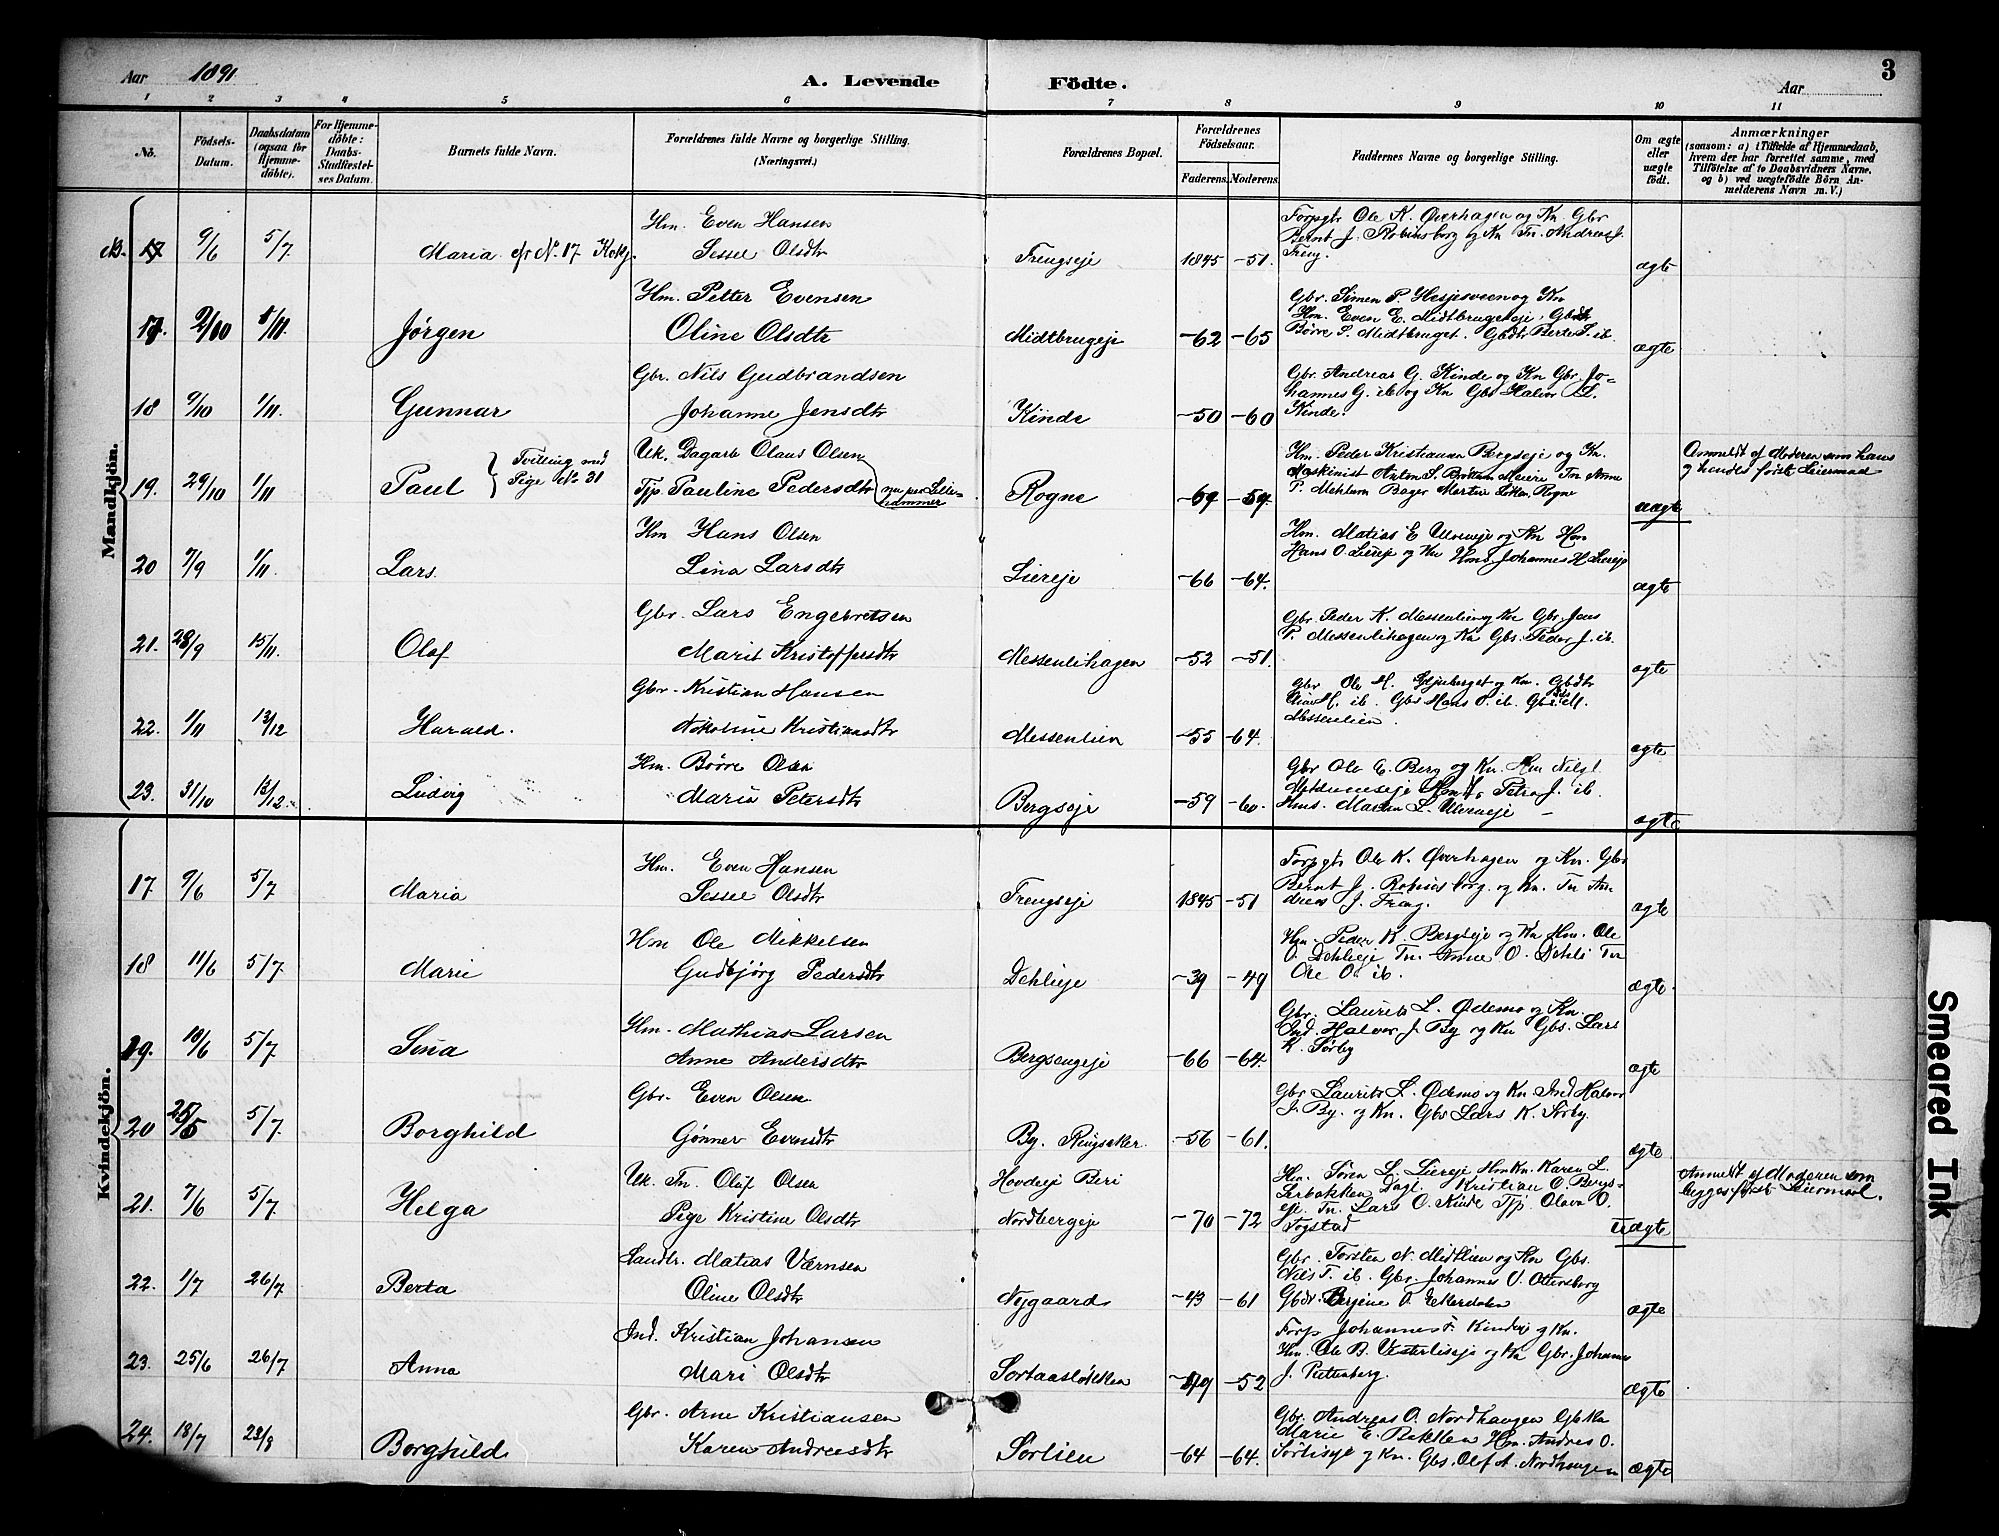 Aar 1891
A. Levende Födte.
Aar
3
1 2 3 4 5 6 7 8 9 10 11
No.
Födsels-Datum.
Daabsdatum (ogsaa for Hjemmedöbte).
For Hjemmedöbte: Daabs-Stadfæstelses Datum.
Barnets fulde Navn.
Forældrenes fulde Navne og borgerlige Stilling. (Næringsvei.)
Forældrenes Bopæl.
Forældrenes Födselsaar.
Faderens. Moderens.
Faddernes Navne og borgerlige Stilling.
Om ægte eller uægte födt.
Anmærkninger
(saasom: a) i Tilfælde af Hjemmedaab, hvem der har forrettet samme, med Tilföielse af to Daabsvidners Navne. og b) ved uægtefödte Börn Anmelderens Navn m. V.)
Mandkjön.
17 9/6 5/7 Maria cfr No. 17 Kvkj.
Hm. Even Hansen
Sessel Olsdtr
Frengseje 1845 -51.
Forpgbr Ole K. Øverhagen og Kn. Gbr
Bernt J. Robinsborg og Kn Tn. Andreas J.
Freng.
ægte
17. 2/10 1/11 Jørgen
Hm. Petter Evensen
Oline Olsdtr
Midtbrugeje -62 -65
Gbr. Simen P. Hesjesveen og Kn
Hm. Even E. Midtbrugeteje. Gbdtr
Børre S. Midtbruget. Gbdtr Berte S. ib.
ægte
18 9/10 1/11. Gunnar
Gbr. Nils Gudbrandsen
Johanne Jensdtr
Kinde -50 -60
Gbr. Andreas G. Kinde og Kn Gbr. Jo-
hannes G. ib og Kn Gbs Halvor L.
Kinde.
ægte
19. 29/10 1/11 Paul { Tvilling med Pige No 31
Uk. Dagarb Olaus Olsen
Tjp. Pauline Pedersdtr
Lillehammer
Rogne -69 -59.
Hm. Peder Kristiansen Bergseje og Kn.
Maskinist Anton S. Brottum Meieri Tn Anne
P. Mehlum Bager Martin Rogne
uægte
Anmeldt af Moderen som hans
og hendes første Leiermaal
20 7/9 1/11. Lars.
Hm Hans Olsen
Lina Larsdtr
Liereje -66 -64.
Hm. Matias E Ulverseje og Kn Hm
Hans O. Liereje og Kn Hmd. Johannes H. Liereje
ægte
21. 28/9 15/11. Olaf
Gbr. Lars Engebretsen
Marit Kristoffersdtr
Messenlihagen -52 -51.
Gbr. Peder K. Messenlien og Kn Gbr. Jens
P. Messenlihagen og Kn Gbs. Peder J. ib.
ægte
22. 1/11 13/12 Harald.
Gbr. Kristian Hansen
Nikoline Kristiansdtr
Messenlien -55 -64.
Gbr Ole H. og Kn. Gbdtr
H. ib. Gbs Hans O. ib. Gbs M.
Messenlien.
ægte
23. 31/10 13/12. Ludvig
Hm. Børre Olsen
Maria Petersdtr
Bergseje -59 -60.
Gbr Ole E. Berg og Kn. Hm Nils
Petra J. ib.
Hms. Marten L.
ægte
Kvindekjön.
17 9/6 5/7 Maria
Hm. Even Hansen
Sessel Olsdtr
Frengseje 1845 -51
Forpgbr Ole K. Øverhagen og Kn. Gbr
Bernt J. Robinsborg. og Kn. Tn An-
dreas J. Freng.
ægte
18 11/6 5/7. Marie
Hm Ole Mikkelsen
Gudbjørg Pedersdtr
Dehlieje -39 -49
Hm. Peder K. Bergseje og Kn Hm. Ole
O. Dehlieje Tn. Anne O. Dehli Tn
Ole O. ib.
ægte.
19. 10/6 5/7. Sina
Hm. Mathias Larsen
Anne Andersdtr
Bergsengeje -66 -64.
Gbr. Laurits L. Ødemo og Kn.
Ind. Halvor J. By og Kn Gbs. Lars
K. Sørby
ægte
20 25/5 5/7. Borghild
Gbr. Even Olsen
Gønner Evensdtr
By. Ringsaker. -56 -61.
Gbr Laurits L. Ødemo og Kn Ind Halvor
J. By. og Kn. Gbs Lars K. Sørby.
ægte.
21. 7/6 5/7. Helga
Uk. Tn. Oluf Olsen
Pige Kristine Olsdtr
Hovdseje Biri
Nordbergeje -70 -72
Hm. Søren L. Liereje Hmkn. Karen L.
Sørbakken Dagl. Kristian O. Bergs-
eje. Tn. Lars O. Kinde Tjp. Olava O.
Fogstad
Uægte
Anmeldt af Moderen som
begges første Leiermaal.
22. 1/7 26/7 Berta
Landh. Matias Værnsen
Oline Olsdtr
Nygaard -43 -61
Gbr. Torsten N. Midtlien og Kn Gbs.
Nils T. ib. Gbr. Johannes O. Ottersborg
Gbdtr. Berjene O. Ekerdalen
ægte
23. 25/6 26/7 Anna
Ind. Kristian Johansen
Mari Olsdtr
Sortaasløkken -49 -52
Forp Johannes F. Kindeje og Kn.
Hm. Ole B. Vesterlieeje og Kn Gbr. Johannes
J. Plettenberg.
ægte
24. 18/7 23/8 Borghild
Gbr. Arne Kristiansen
Karen Andreasdtr
Sørlien -64 -64.
Gbr. Andreas O. Nordhaugen Gbkn
Marie E. Bakken Hm. Andres O.
Sørlieeje og Kn. Gbs. Olof A. Nordhaugen
ægte
Smeared Ink